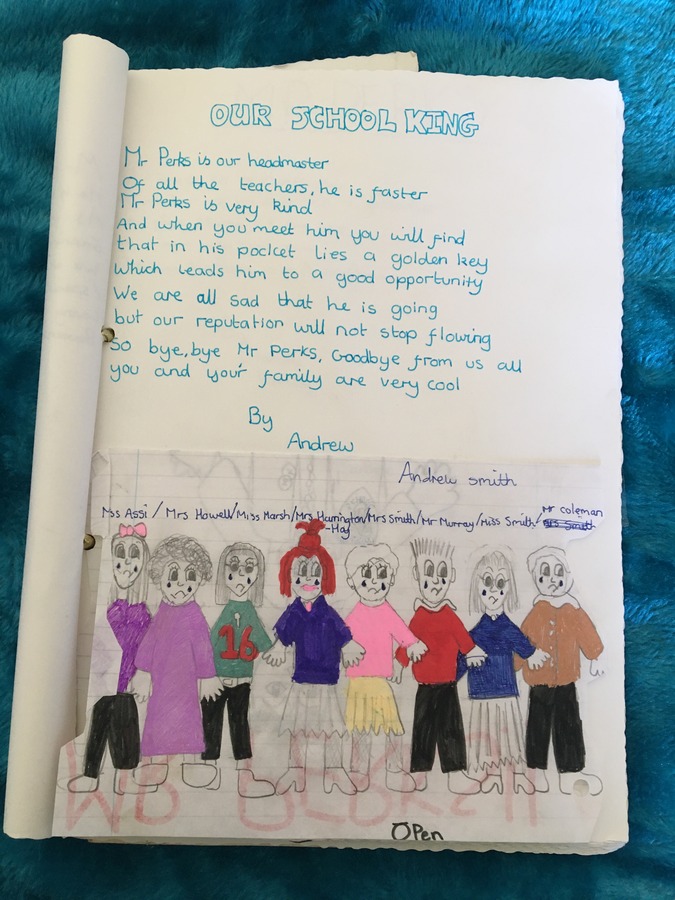 OUR SCHOOL KING
Mr Perks is our headmaster
Of all the teachers, he is faster
Mr Perks is very kind
And when you meet him you will find
that in his pocket lies a golden key
which leads him to a good opportunity
We are all sad that he is going
but our reputation will not stop flowing
So bye, bye Mr Perks, Goodbye from us all
you and your family are very cool
By
Andrew
Andrew smith
Mr coleman
Mss Assi / Mrs Howell / Miss Marsh / Mrs Harrington / Mrs Smith / Mr Murray / Miss Smith /
-Hay
16
Open